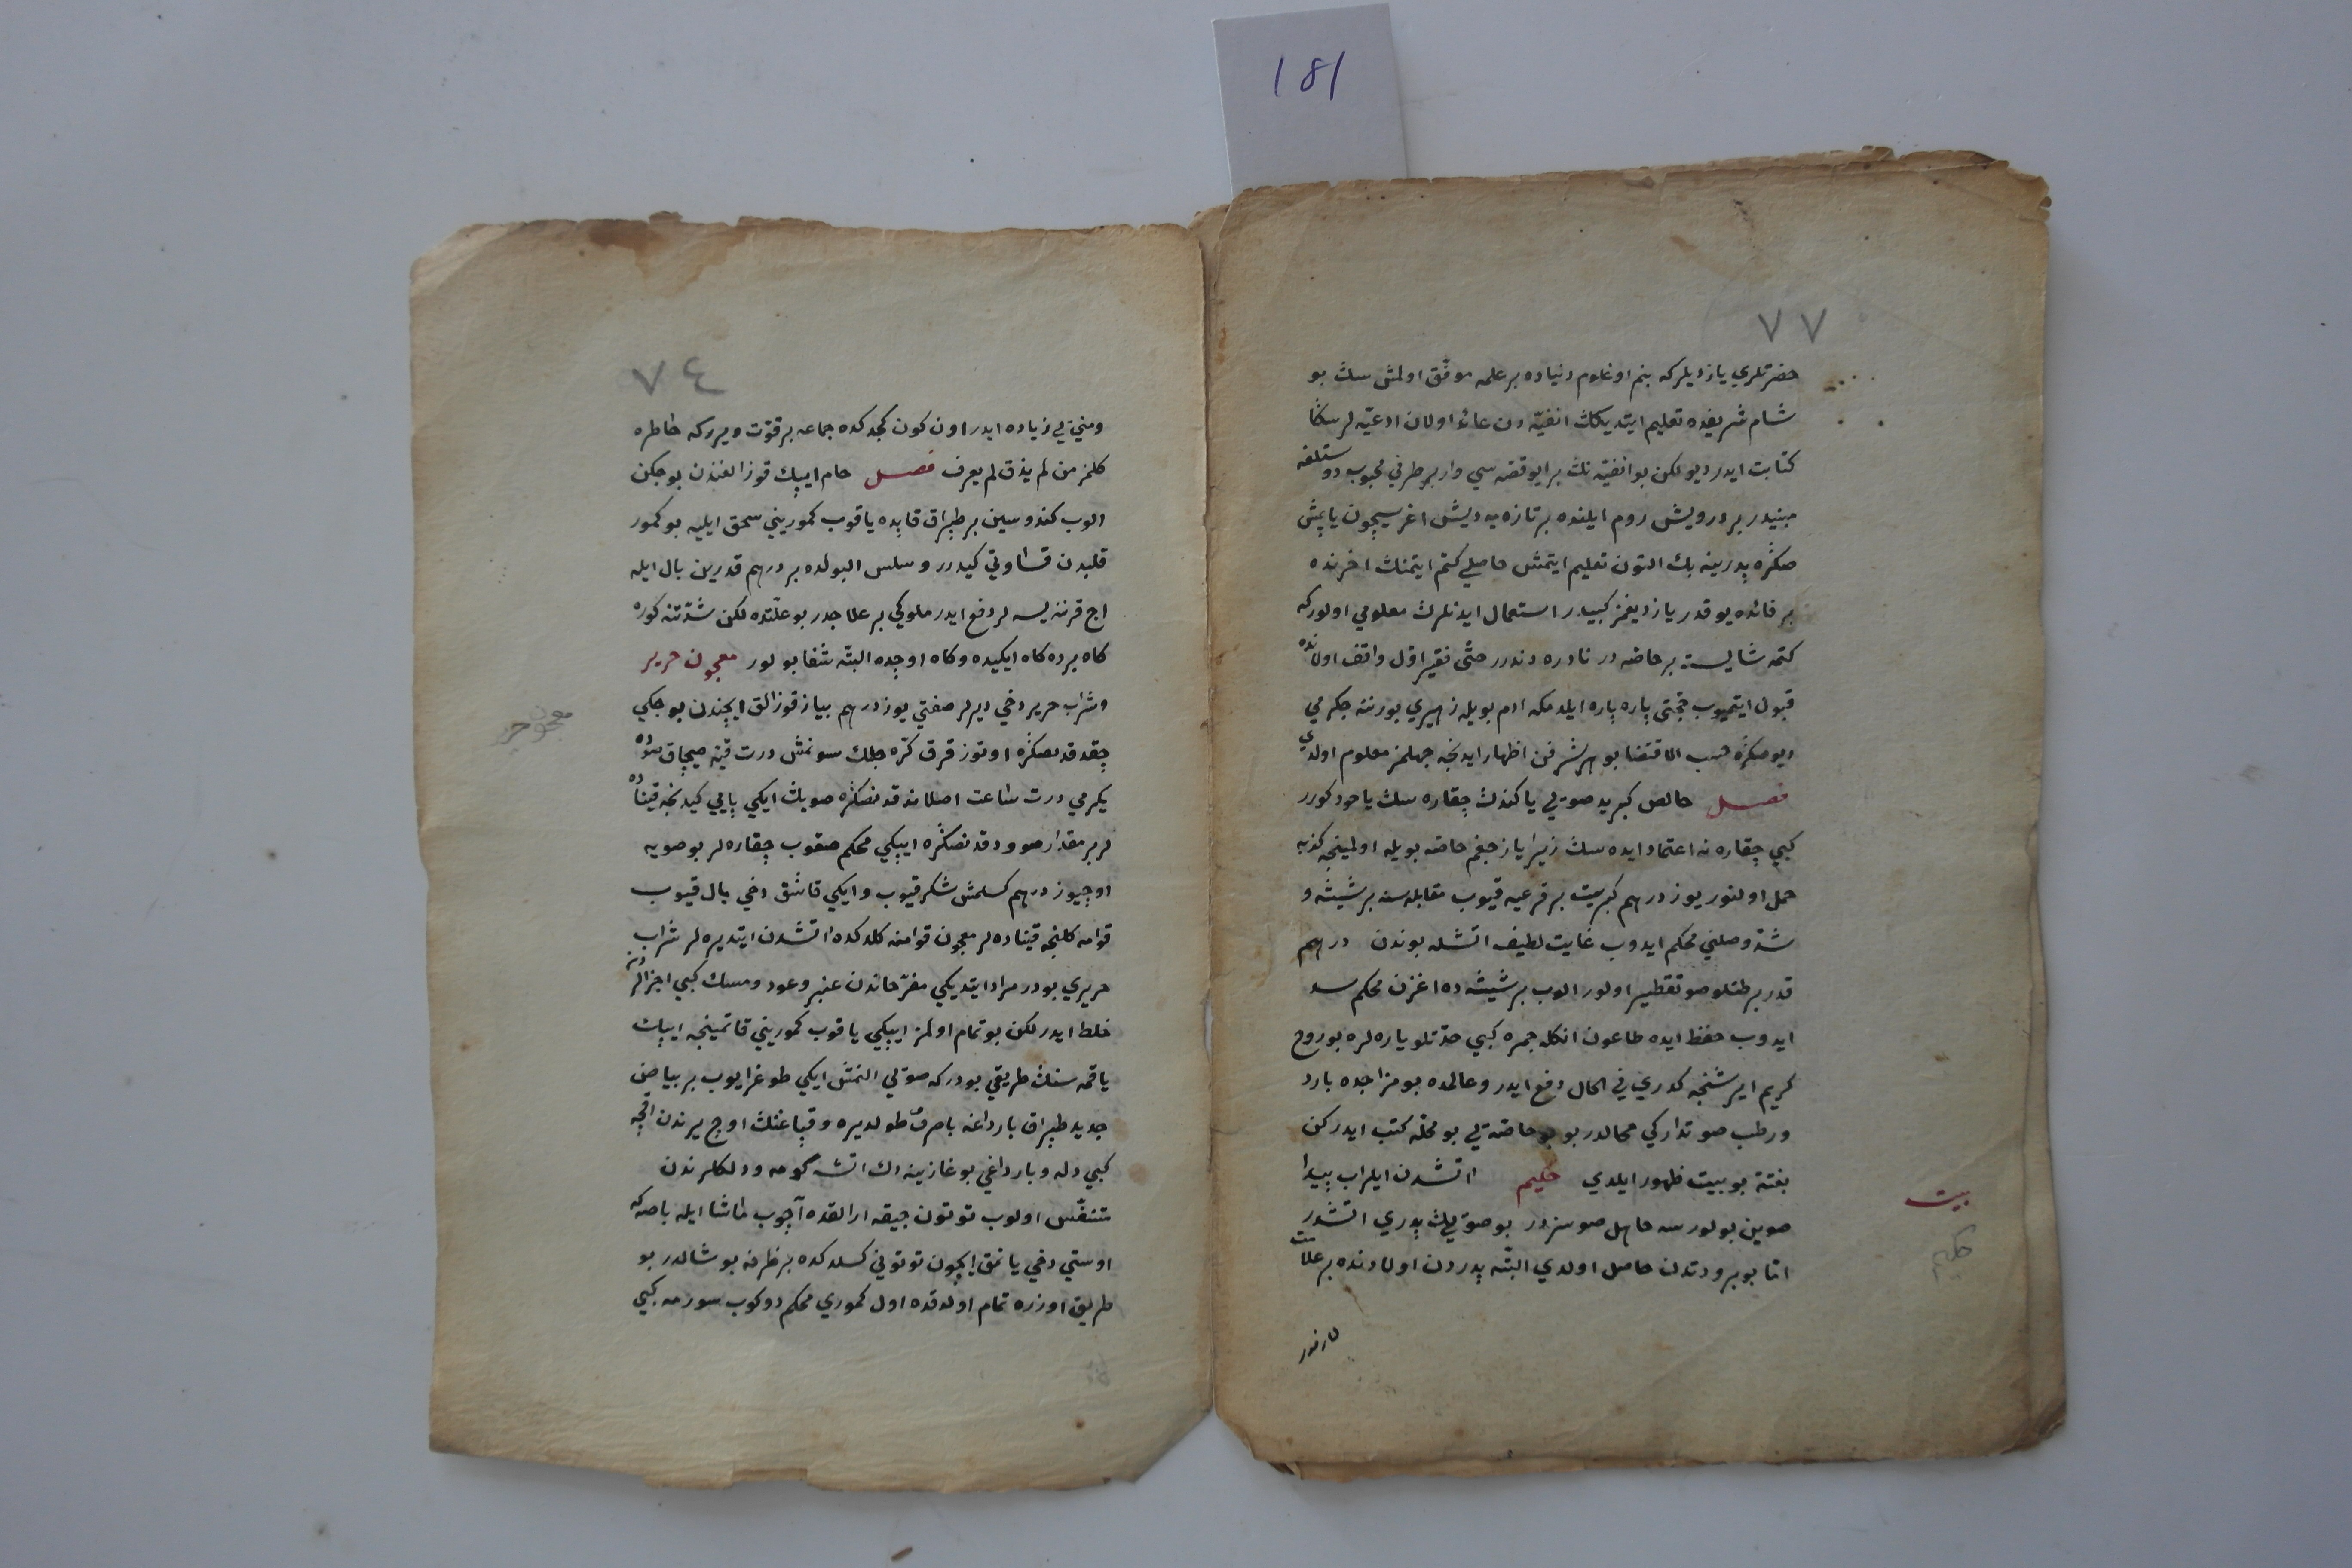 181
٧٧
حضرتلري يازديلركه بنم اوغلوم دنياده بر علمه موفق اولمش سك بو
شام شريفده تعليم ايتديكك انفيّه دن عائد اولان ادعيّه لر سكا
كتابت ايدر ديو لكن بو انفيّه نك بر ايو قصه سي وار بر طرفي محبوب دوستلغه
مبنيدر بر درويش روم ايلنده بر تازه يه ديش اغرسيچون ياپمش
صكره پدرينه بك التون تعليم ايتمش حاصلي كتم ايتمنك اخرنده
بر فائده يوقدر يازديغمز كبيدر استعمال ايدنلرك معلومي اولور كه
كتمه شايسته بر خاصه در نادره دندر حتّى فقير اوّل واقف اولانده
قبول ايتميوب حجّتى پاره پاره ايلدمكه ادم بويله زهيري بورننه چكرمي
ديو صكره حسب الاقتضا بو هر شرفن اظهار ايدنجه جهلمز معلوم اولدي
فصل خالص كبريد صويي يا كندك چقاره سك ياخود كورر
كبي چقارانه اعتماد ايده سك زيرا يازجغم خاصه بويله اولمينجه كذبه
حمل اولنور يوز درهم كبريت بر قرعيه قيوب مقابله سنه بر شيشه و
شدّ وصلني محكم ايدوب غايت لطيف اتشله بوندن درهم
قدر بر طتلو صو تقطير اولور الوب بر شيشه ده اغزن محكم سد
ايدوب حفظ ايده طاعون انكله جمره كبي حدّتلو ياره لره بو روح
كريم ايرشنجه كدري في الحال دفع ايدر و عالمده بو مزاجده بارد
و رطب صو تداركي محالدر بو خاصه يي بو محلّه كتب ايدركن
بغتة بو بيت ظهور ايلدي حكيم اتشدن ايلر اب پيدا
صوين بولورسه جاهل صوسزدر بو صويك پدري اتشدر
امّا بو برودتدن حاصل اولدي البتّه پدردن اولادنده بر علامت
بيت
حكيم
٧٤
ومني يي زياده ايدر اون كون كچدكده جماعه بر قوّت ويرر كه خاطره
كلمز من لم يذق لم يعرف فصل خام ايپك قوزالغندن بوجكن
الوب كندوسين بر طپراق قابده ياقوب كموريني سحق ايليه بو كمور
قلبدن قساوتي كيدرر و سلس البولده بر درهم قدرين بال ايله
اج قرننه يسه لر دفع ايدر ملوكي بر علاجدر بو علّتده لكن شدّتنه كوره
كاه برده كاه ايكيده و كاه اوچده البتّه شفا بولور معجون حرير
و شراب حرير دخي ديرلر صفتي يوز درهم بياز قوزالق ايچندن بوجكي
چقدقدنصكره اوتوز قرق كرّه چلك سونمش درت قيّه صيجاق صوده
يكرمي درت ساعت اصلاندقدنصكره صوينك ايكي پايي كيدنجه قينادوب
لر بر مقدار صوودقدنصكره ايپكي محكم صقوب چقاره لر بو صويه
اوچيوز درهم كسلمش شكر قيوب و ايكي قاشق دخي بال قيوب
قوامه كلنجه قيناده لر معجون قوامنه كلدكده اتشدن ايتديره لر شراب
حريري بودر مراد ايتديكي مفرّحاتدن عنبر و عود و مسك كبي اجزالردن
خلط ايدر لكن بو تمام اولمز ايپكي ياقوب كموريني قاتمينجه ايپك
ياقمه سنك طريقي بودركه صويي النمش ايكي طوغرايوب بر بياض
جديد طپراق بارداغه باصرق طولديره و قپاغنك اوچ يرندن اقچه
كبي دله و بارداغي بوغازينه دك اتشه كومه و دلكلرندن
متنفّس اولوب توتون چيقه ارالقده آچوب ماشا ايله باصه كه
اوستي دخي يانمق ايچون توتوني كسلدكده بر ظرفه بوشالدر بو
طريق اوزره تمام اولدقده اول كموري محكم دوكوب سورمه كبي